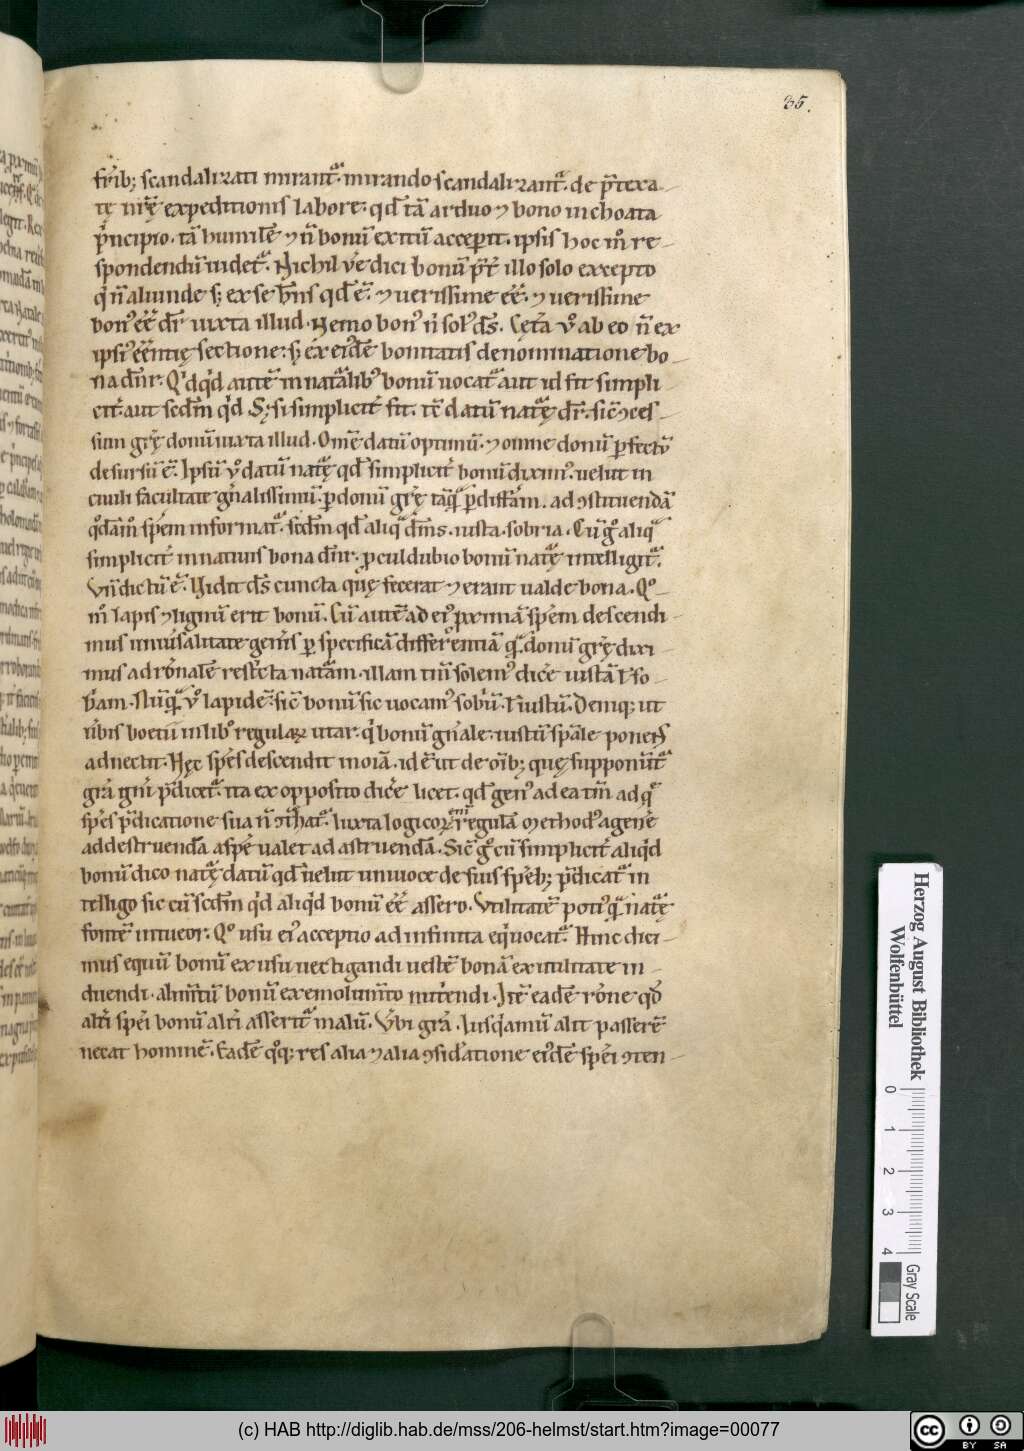 35.
frib; scandalizati mirant᷑. mirando scandalizant᷑. de p̄texa-
tę nr̄ę expeditionis labore. qd̄ tā arduo ⁊ bono inchoata
pͥncipio. tā humilē ⁊ n̄ bonū exitū acceperit. ipsis hoc m̊ re-
spondendū uidet᷑. Nichil ūe dici bonū p̄t̄ illo solo excepto
qͥ n̄ aliunde s; ex se hn̄s qd̄ ē. ⁊ uerissime eē. ⁊ uerissime
bonꝰ eē dr̄ iuxta illud. Nemo bonꝰ n̄ solꝰ ds̄. Cęt̄a ů ab eo n̄ ex
ipsiꝰ eēntię sectione. s; ex eiꝰdē bonitatis denominatione bo-
na dn̄r. Qͥdqͥd autē in natālibꝰ bonū uocat᷑ aut id fit simpli
cit̄. aut scdm̄ qͥd. S; si simplicit̄ fit. tē datū natᷓę dr̄. sic̄ ꝯces-
sum gr̄ę donū iuxta illud. Om̄e datū optimū. ⁊ omne donū ꝑfectū
desursū ē. Ipsū ů datū natᷓę qd̄ simplicit̄ bonū diximꝰ. uelut in
ciuili facultate gn̄alissimū. ꝑ donū gr̄ę tāqᷓ ꝑ diffīam. ad ꝯstituendā
q̊dāmͦ spēm informat᷑. scdm̄ qd̄ aliqᷓ dīms. iusta. sobria. Cū g̊ aliqᷓ
simplicit̄ in natiuis bona dn̄r. proculdubio bonū natᷓę intelligit᷑.
Vn̄ dictū ē. Uidit ds̄ cuncta quę fecerat ⁊ erant ualde bona. Qͦ-
m̊ lapis ⁊ lignū erit bonū. Cū autē ad eiꝰ proximā spēm descendi-
mus uniūsalitate gen̄is ꝑ specificā differentiā qᷓ. donū gr̄ę dixi-
mus ad rōnalē rest̄cta natᷓam. illam tm̄ solemꝰ dicͤe iustā ł so-
br̄am. Nūqᷓ ů lapidē. sic̄ bonū sic uocamꝰ sobr̄ū. ł iustū. Deniq; ut
ūbis boetii in libͦ regulaꝝ utar. qͥ bonū gn̄ale. iustū spāle ponens
adnectit. Hęc spēs descendit in oīa. id ē ut de oīb; quę supponunt᷑
gr̄a ign̄i p̄dicet᷑. ita ex opposito dicͤe licet. qd̄ genꝰ ad ea tm̄ ad qᷓ
spēs p̄dicatione sua n̄ ꝯthat᷑. Iuxta logicoꝝ regulā ⁊ methodꝰ a genͤe
ad destruendā a spē ualet ad astruendā. Sic̄ g̊ cū simplicit̄ aliqͥd
bonū dico natᷓę datū qd̄ uelut uniuoce de suis speb; p̄dicat᷑ in
telligo sic cū scdm̄ qͥd aliqͥd bonū eē assero. Vtilitatē potiꝰ qᷓ natᷓę
fontē intueor. Qͦ usu eiꝰ acceptio ad infinita eqͥuocat᷑. Hinc dici-
mus equū bonū ex usu uectigandi uestē bonā ex utilitate in-
duendi. alim̄tū bonū ex emolum̄to nut̄endi. Itē eadē rōne qd̄
alt̄i spēi bonū alt̄i asserit᷑ malū. Vbi gr̄a. Iusqͥamū alit passerē
necat hominē. Eadē qͦq; res alia ⁊ alia ꝯsid̄atione eiꝰdē spēi ꝯten-
Herzog August Bibliothek
Wolfenbüttel
0 1 2 3 4
Gray Scale
(c) HAB http://diglib.hab.de/mss/206-helmst/start.htm?image=00077
cc BY SA